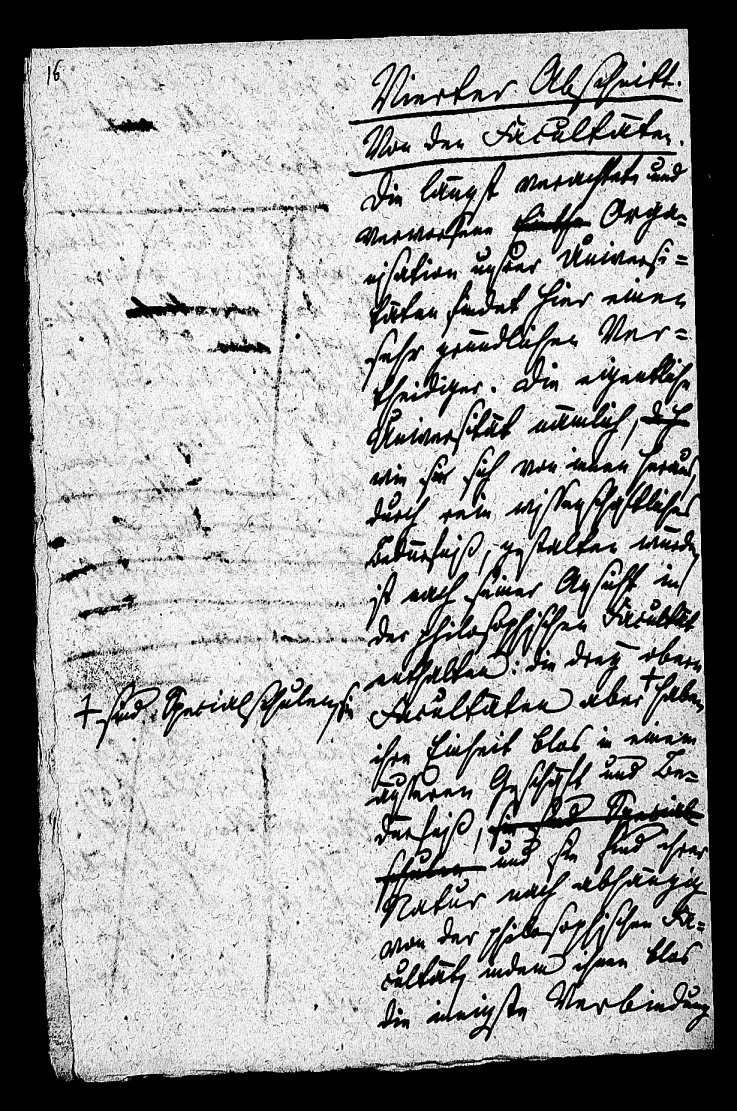 16
Vierter Abschnitt.
Von den Facultäten.
Die längst verachtete und
verworfene Orga-
nisation unsrer Universi-
täten findet hier einen
sehr gründlichen Ver-
theidiger. Die eigentliche
Universität nämlich,
wie sie sich von innen heraus,
durch rein wissenschaftliches
Bedürfniß, gestalten würde,
ist nach seiner Ansicht in
der philosophischen Facultät
enthalten: die drey obern
Facultäten aber + haben
+ sind Specialschulen, sie
ihre Einheit blos in einem
äußeren Geschäft und Be-
dürfniß, sie sind Special-
schulen und sie sind ihrer
Natur nach abhängig
von der philosophischen Fa-
cultät, indem ihnen blos
die innigste Verbindung